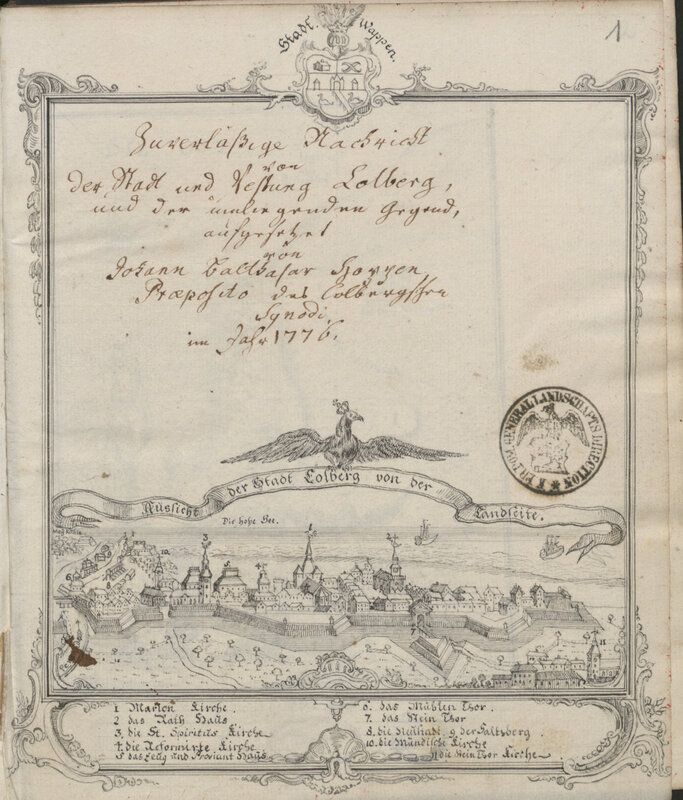 1
Stadt Wappen.
Zuverläßige Nachricht
von
der Stadt und Vestung Colberg,
und der umliegenden Gegend,
aufgesetzet
von
Johann Balthasar Hoppen,
Præposito des Colbergschen
Synodi,
im Jahr 1776.
K. PR. POM. GENERALLANDSCHAFTS DIRECTION
Aussicht der Stadt Colberg von der Landseite.
Die hohe See.
1 Marien Kirche.
2 das Rath Haus
3, die St. Spiritus Kirche
4. die Reformirte Kirche
5 das Zeug und Proviant Haus
6. das Mühlen Thor.
7. das Stein Thor
8. die Neustadt 9. der Saltzberg.
10. die Mündische Kirche
11 die Stein Thor Kirche